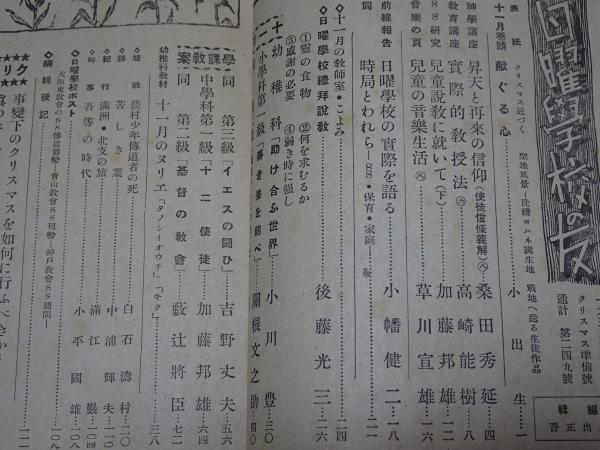 日曜學校の友
クリスマス準備號
通計 第二四九號
編輯
出正吾
表紙 クリスマス近づく 聖地風景―洗禮ヨハネ誕生地 戰地へ送る生徒作品
十一月卷頭 獻ぐる心 小出生…一
神學講座 昇天と再來の信仰(使徒信條義解)(八) 桑田秀延…四
教育講座 實際的教授法(六) 高崎能樹…八
SS研究 兒童説教に就いて(下) 加藤邦雄…二二
音樂の頁 兒童の音樂生活(八) 草川宣雄…一六
前線報告 日曜學校の實際を語る 小幡健二…一八
同 時局とわれら―SS・保育・家庭―
◇十一月の教師室・こよみ 二四
◇日曜學校禮拜説教 後藤光三…二六
①靈の食物 ②何を求むるか
③感謝の必要 ④弱き時に強し
幼稚科「助け合ふ世界」 小川豊…三〇
小學科第一級「善き果を結べ」 關根文之助…四〇
學課教案
同 第三級「イエスの鬪ひ」 吉野丈夫…五六
中學科第一級「十二使徒」 加藤邦雄…六四
同 第二級「基督の教會」 藪辻將臣…七二
幼稚科教材 十一月のヌリエ「タノシイオウチ」「キク」 三八
農村少年傳道者の死 白石濤村…
◇詩 苦しき業 中浦輝夫…
◇紀行 滿洲・北支の旅 滿江巖…一〇四
◇時事 吾等の時代 小平國雄…一〇九
◇日曜學校ポスト
大阪東教會のSS傳道趨勢―青山教會SS現勢―神戸教會SS週間―
◇編輯後記
事變下のクリスマスを如何に行ふべきか